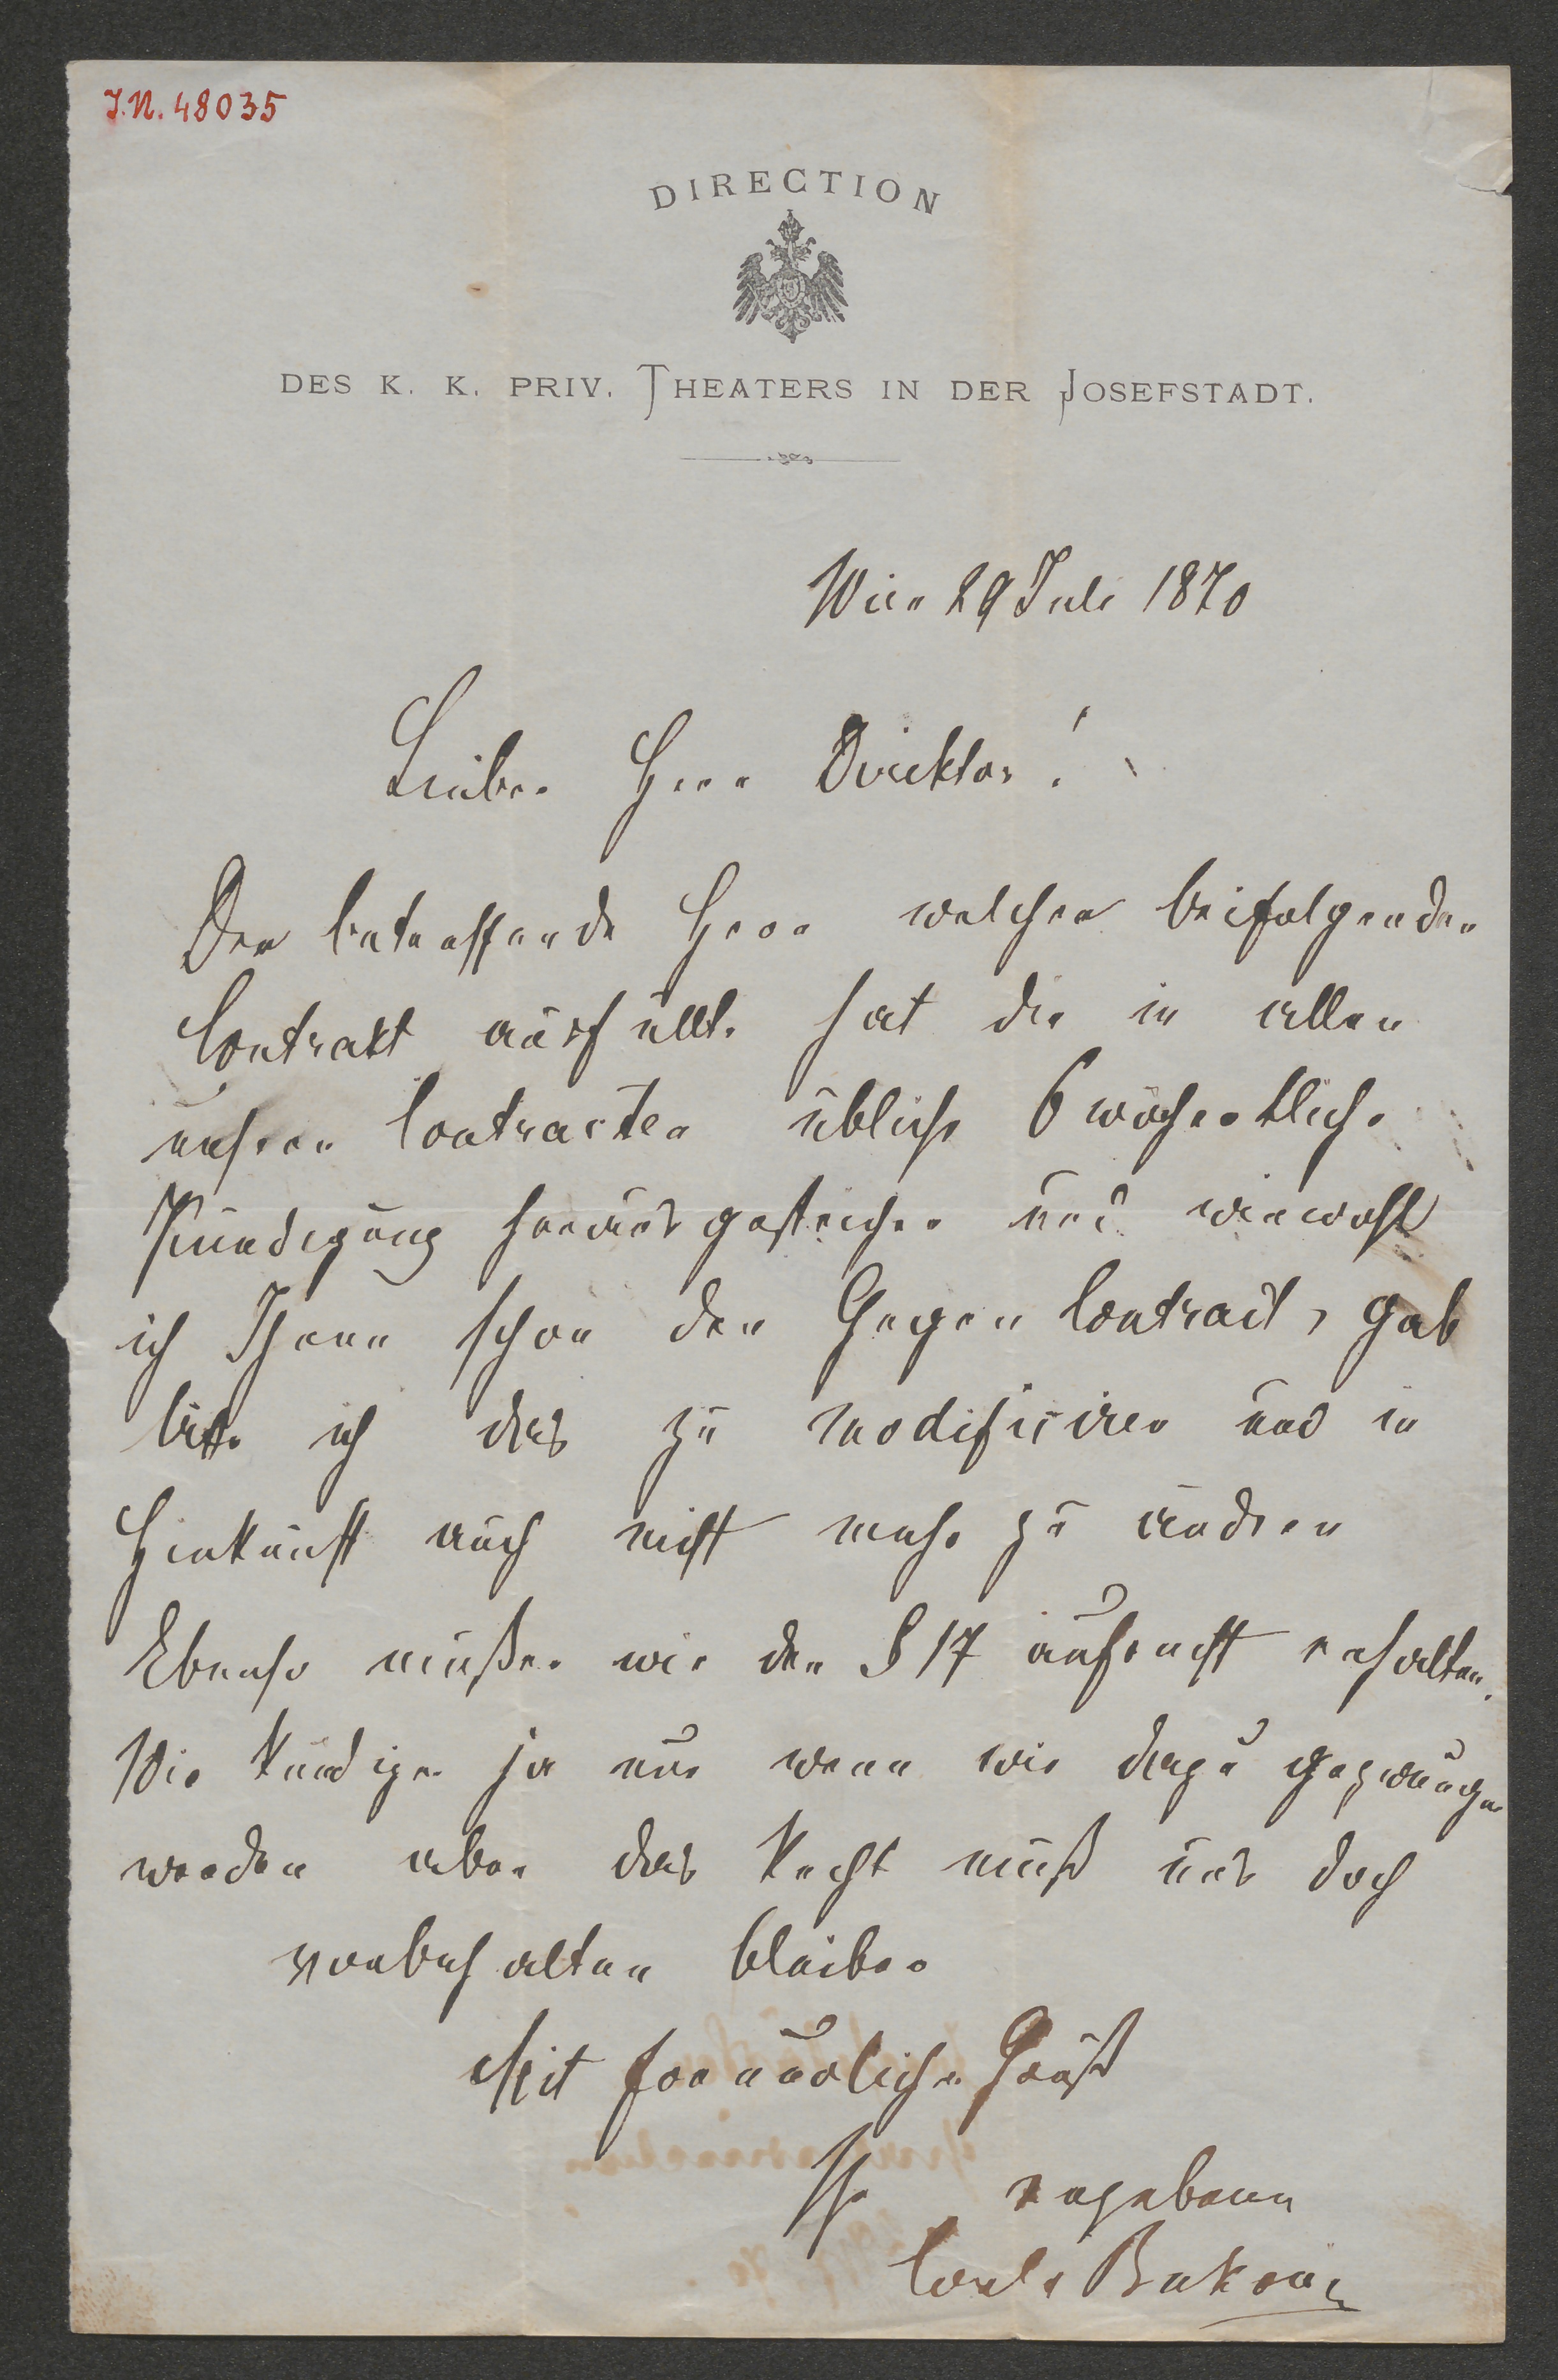 I.N. 48035
DIRECTION
DES K. K. PRIV. THEATERS IN DER JOSEFSTADT.
Wien 29 Juli 1870
Lieber Herr Direktor!
Der betreffende Herr welcher beifolgenden
Contrakt ausfüllte hat die in allen
unseren Contracten übliche 6 wöchentliche
Kündigung herausgestrichen und wiewohl
ich Ihnen schon den Gegen Contract, gab
bitte ich das zu modificiren und in
Hinkunft auch nicht mehr zu ändern
Ebenso müßen wir den § 17 aufrecht erhalten.
Wir kündigen ja nur wenn wir dazu gezwungen
werden aber das Recht muß uns doch
vorbehalten bleiben
Mit freundlichen Gruß
Ihr ergebener